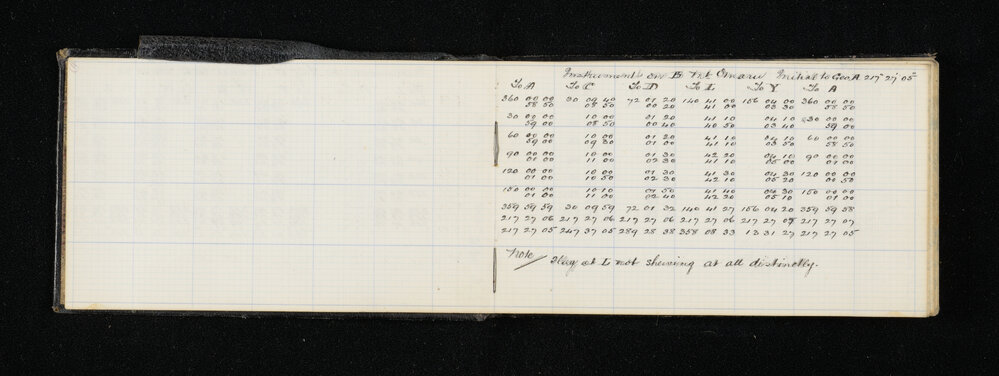 Instrument on B Trk Omaru Initial to Geo A 217 27 05
To A To C To D To L To Y To A
360 00 00 30 09 40 72 01 20 140 41 00 156 04 00 360 00 00
58 50 08 50 00 20 41 00 03 30 58 50
30 00 00 10 00 01 20 41 10 04 10 30 00 00
59 00 08 50 00 40 40 50 03 40 59 00
60 00 00 10 00 01 20 41 10 04 10 60 00 00
59 00 09 30 01 00 41 10 03 50 58 50
90 00 00 10 00 01 30 42 20 04 10 90 00 00
01 00 11 00 02 30 41 10 05 00 01 00
120 00 00 10 00 01 30 41 30 04 30 120 00 00
01 00 10 50 02 30 42 10 05 20 00 50
150 00 00 10 10 01 50 41 40 04 30 150 00 00
01 00 11 00 02 40 42 20 05 10 01 00
359 59 59 30 09 59 72 01 32 140 41 27 156 04 20 359 59 58
217 27 06 217 27 06 217 27 06 217 27 06 217 27 07 217 27 07
217 27 05 247 37 05 289 28 38 358 08 33 13 31 27 217 27 05
Note
Flag at L not showing at all distinctly.